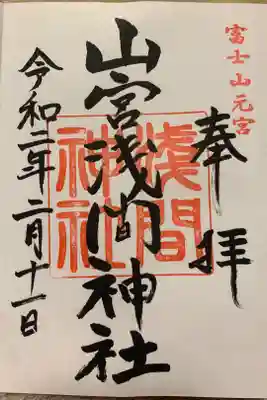 富士山元宮
奉拝
山宮浅間神社
浅間
神社
令和二年二月十一日